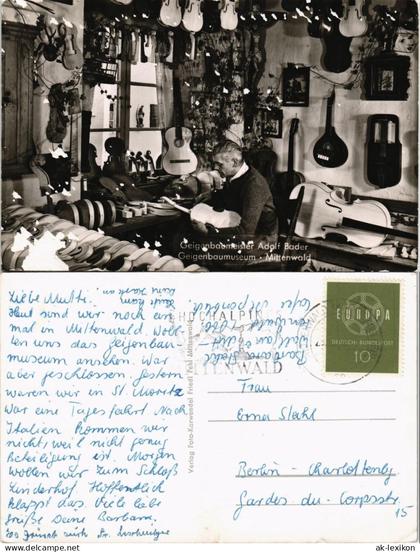 Geigenbaumeister Adolf Bader
Geigenbaumuseum - Mittenwald
Liebe Mutti.
Heut sind wir noch ein-
mal in Mittenwald. Woll-
ten uns das Geigenbau-
museum ansehen. War
aber geschlossen. Gestern
waren wir in St. Moritz
War eine Tagesfahrt. Nach
Italien kommen wir
nicht, weil nicht genug
Beteiligung ist. Morgen
wollen wir zum Schloß
Linderhof. Hoffentlich
klappt das. Viele liebe
Grüße Deine Barbara.
Verlag Foto-Karwendel Friedl Fehl Mittenwald
HOCHALPIN
MITTENWALD
EUROPA
DEUTSCHE BUNDESPOST
10
Frau
Erna Stahl
Berlin - Charlottenbg
Gardes du-Corpsstr.
15
ak-lexikon
© ak-lexikon.de